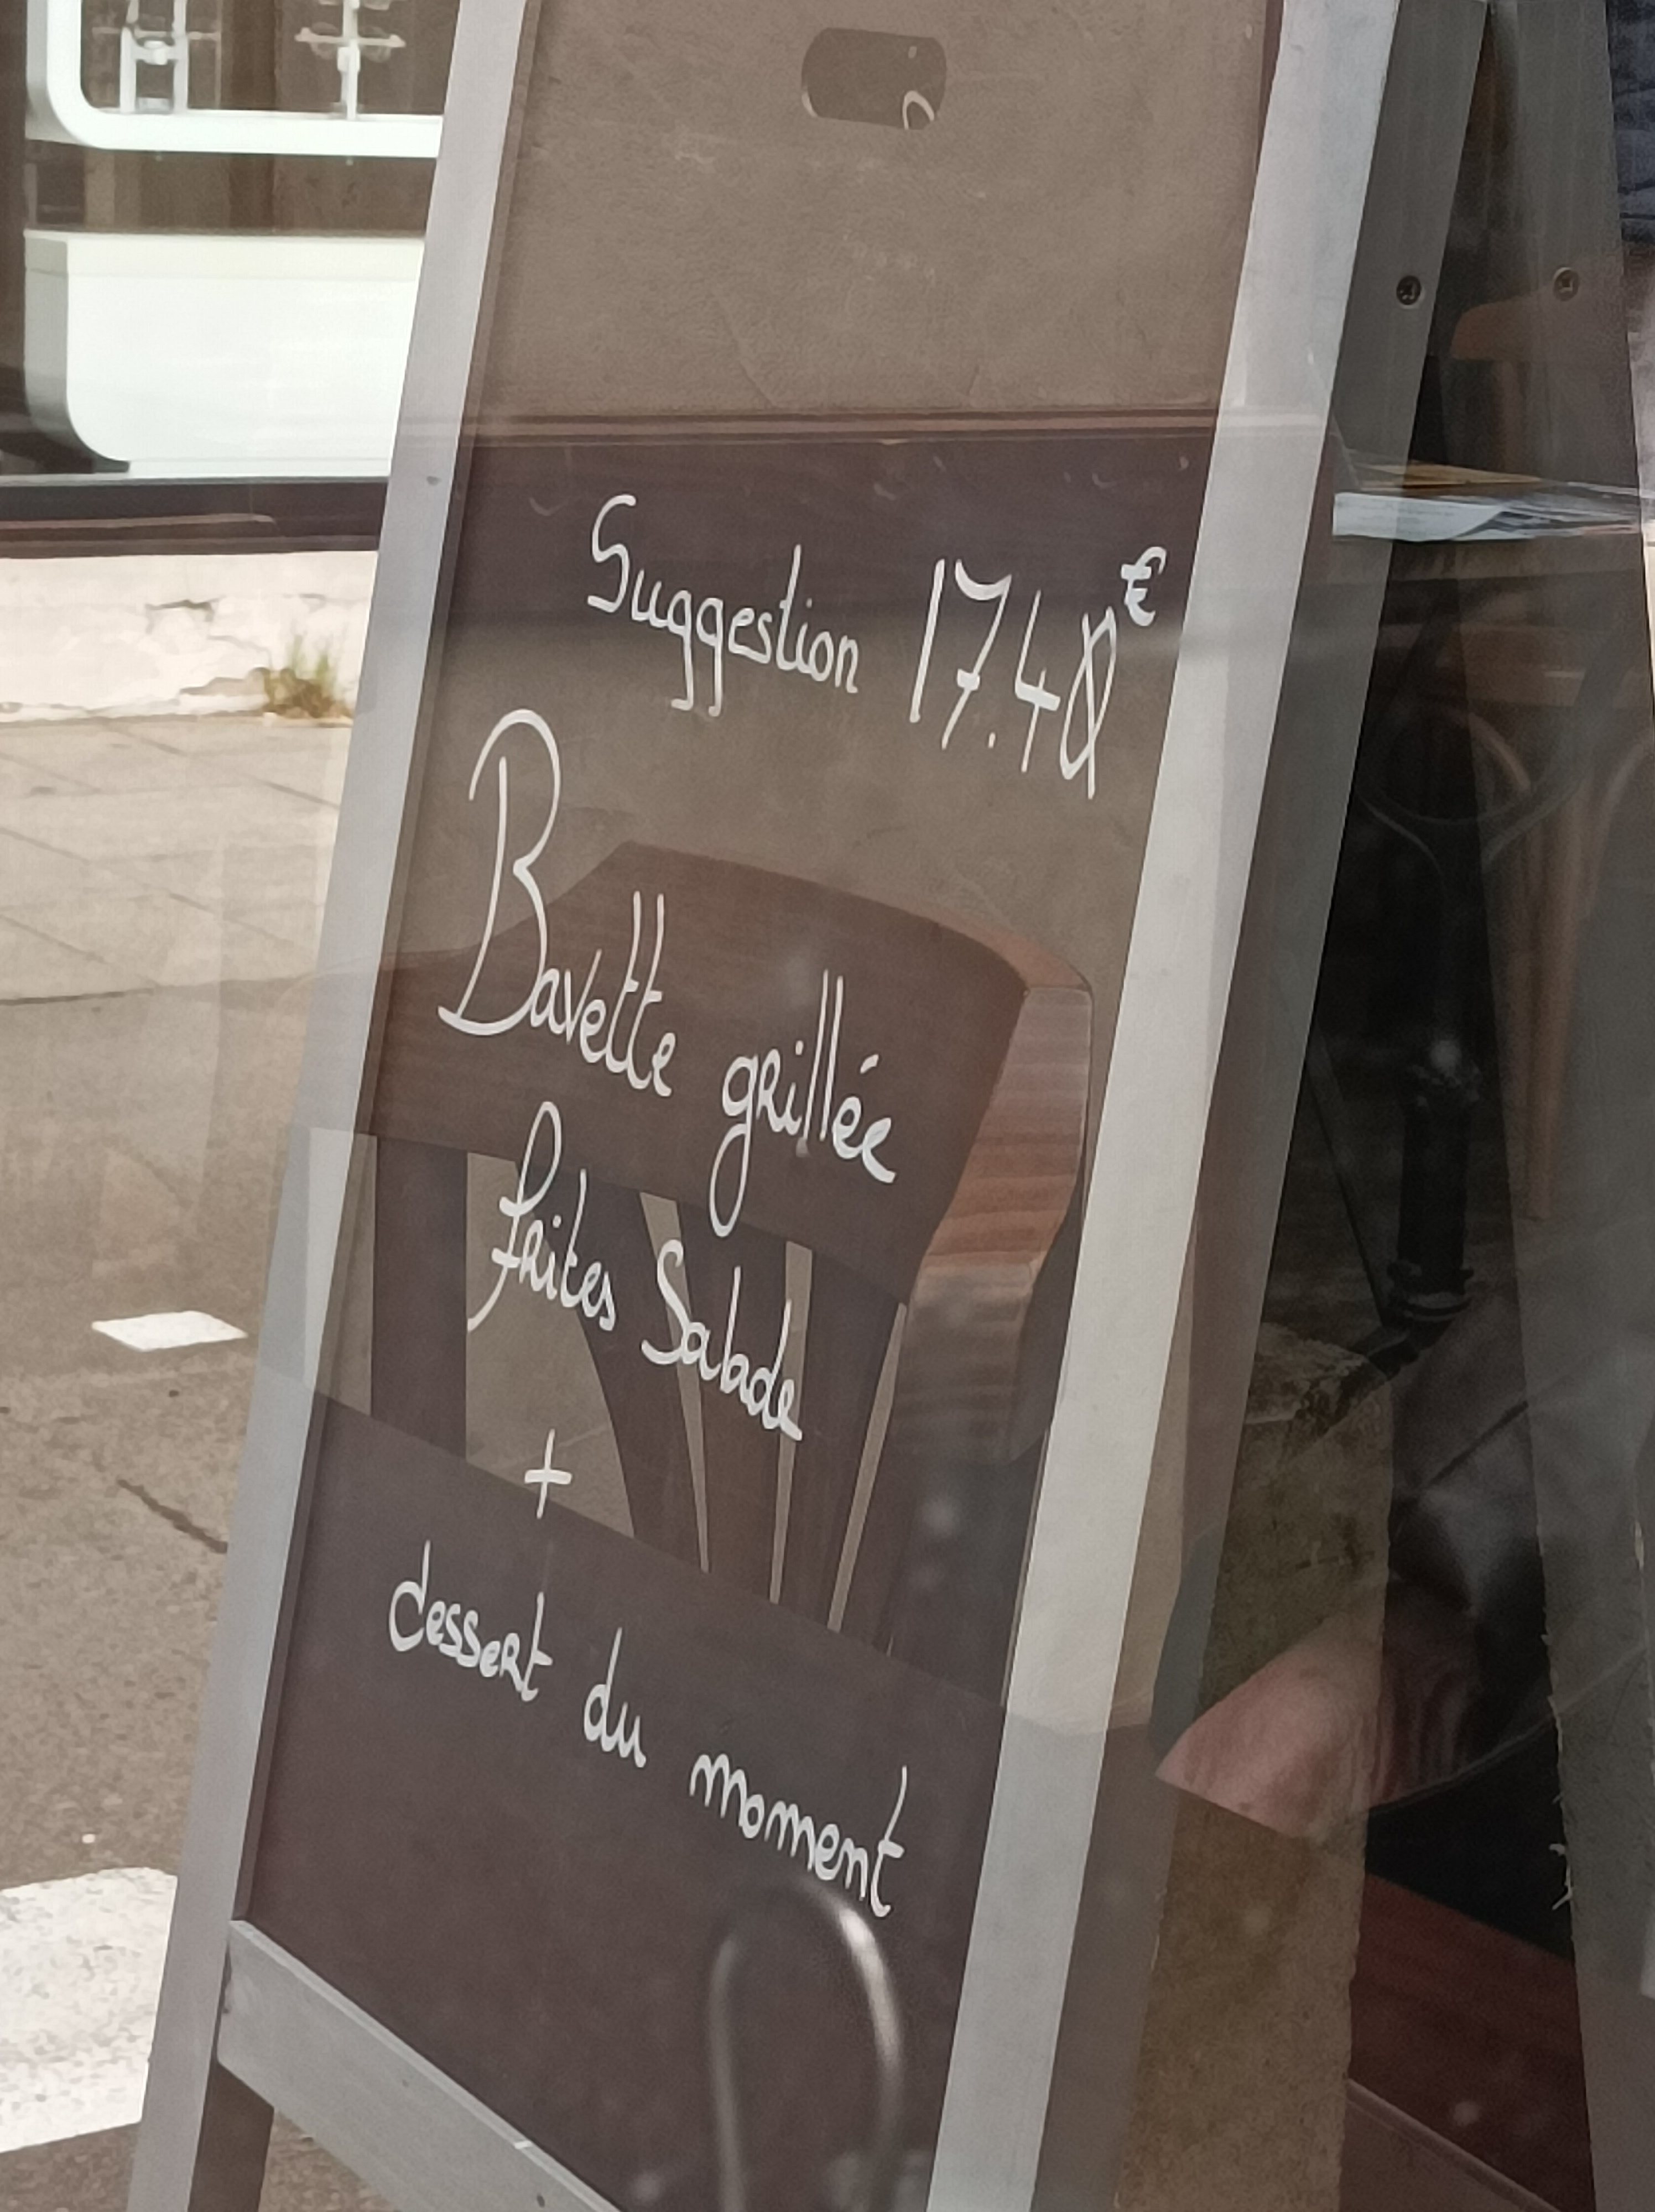 Suggestion 17.40€
Bavette grillée
frites Salade
+
dessert du moment